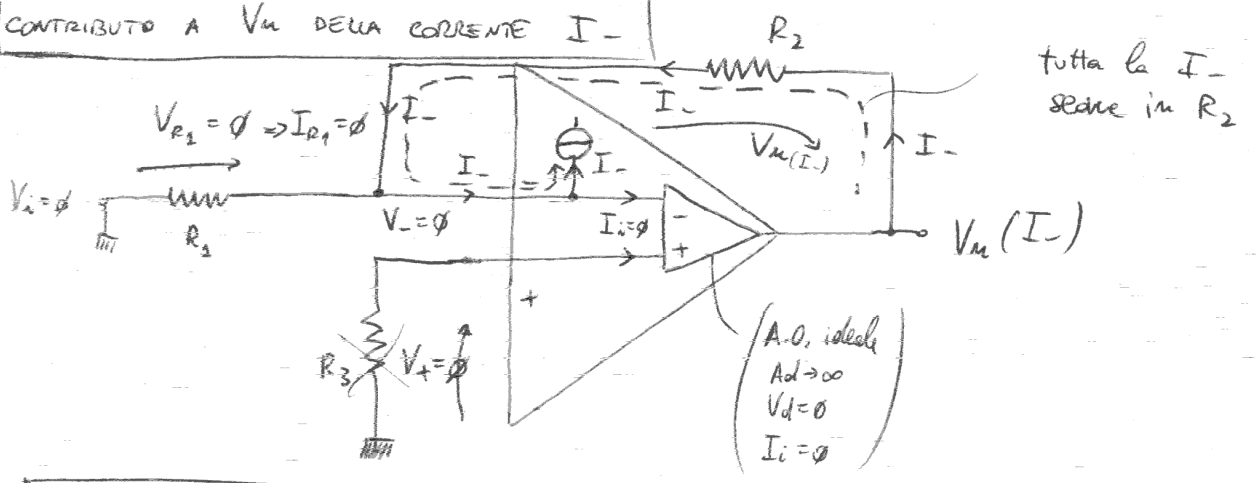 CONTRIBUTO A Vu DELLA CORRENTE I-
R2
tutta la I-
scorre in R2
VR1 = ∅ => IR1 = ∅
I-
I-
Vu(I-)
I-
I-
I-
Vi = ∅
R1
V- = ∅
Ii = ∅
-
+
Vu (I-)
+
R3
V+ = ∅
A.O. ideale
Ad → ∞
Vd = 0
Ii = ∅